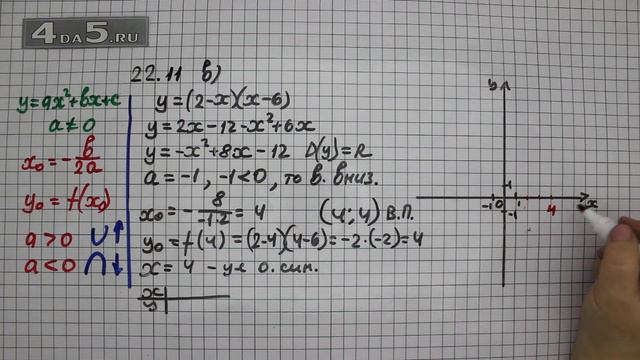 4DA5.RU
22.11 в)
y=ax²+bx+c
a≠0
x₀=-b/2a
y₀=f(x₀)
a>0 ∪↑
a<0 ∩↓
y=(2-x)(x-6)
y=2x-12-x²+6x
y=-x²+8x-12 D(y)=R
a=-1, -1<0, то в. вниз.
x₀=-8/-1·2=4 (4;4) В.П.
y₀=f(4)=(2-4)(4-6)=-2·(-2)=4
x=4 - ур. о. сим.
x
y
y
1
-1 0 1 4 x
-1